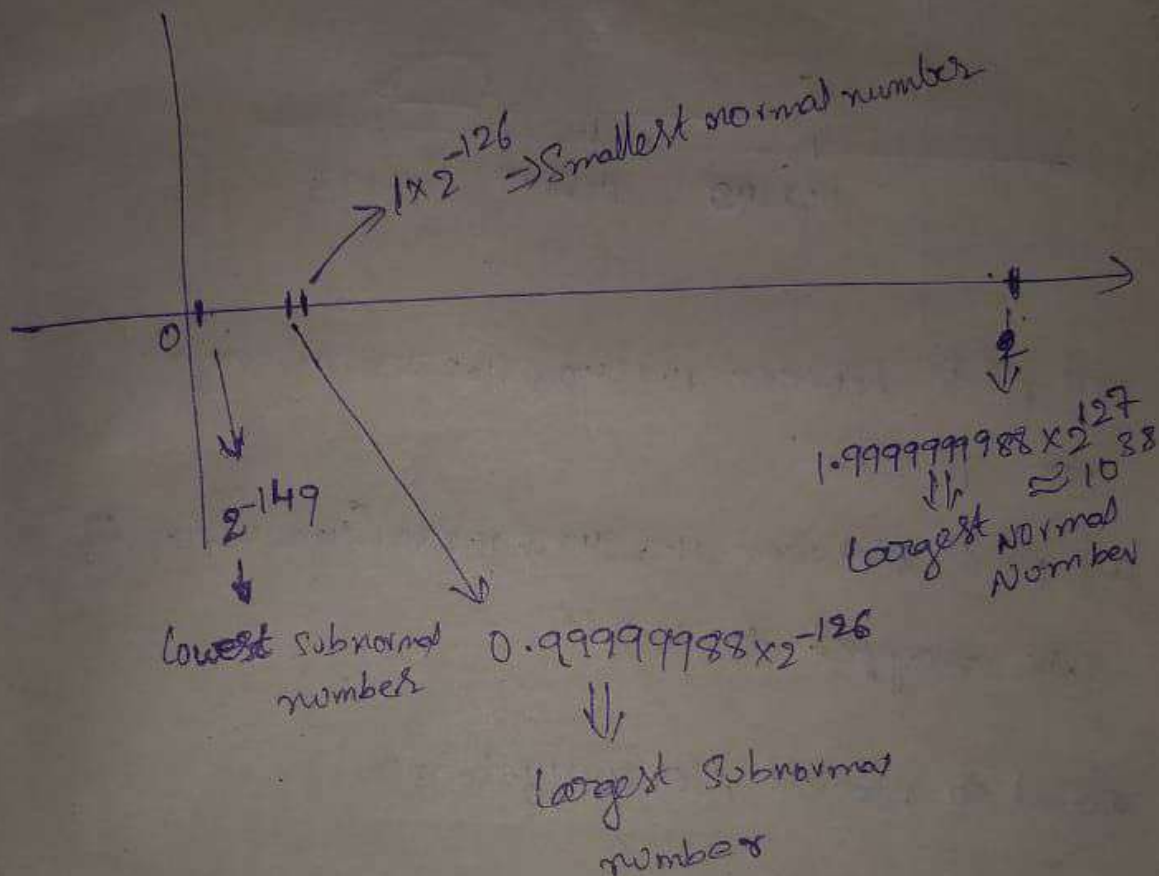 1×2^-126 ⇒ Smallest normal number
0
2^-149
lowest subnormal
number
1.9999999988×2^127
≈ 10^38
largest normal
number
0.99999988×2^-126
largest subnormal
number